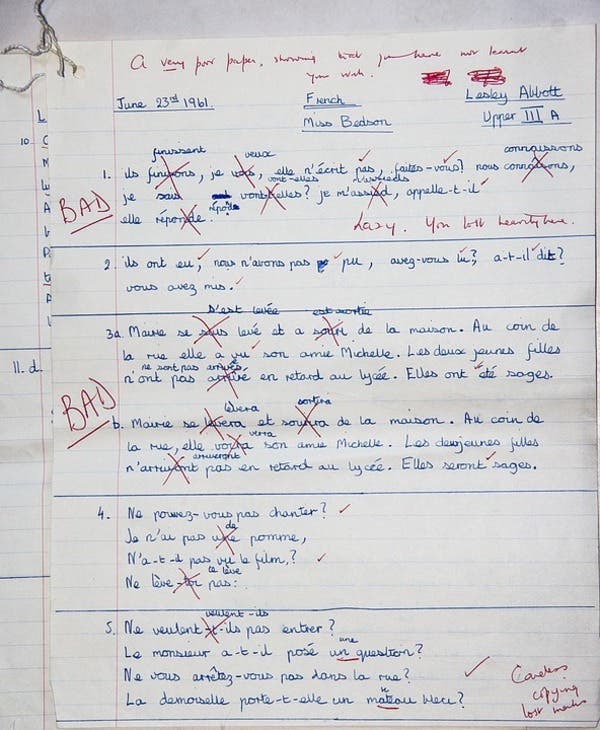 A very poor paper, showing that you have not learnt
your work.
June 23rd 1961. French Lesley Abbott
Miss Bedson Upper III A
finissent veux connaissons
1. ils finissons, je vous, elle n'écrit pas, faites-vous? nous connaîsons,
vont-elles m'assieds
BAD je suis vont-elles? je m'assied, appelle-t-il
répond
elle réponde. Lazy. You lost heavily here.
2. ils ont eu, nous n'avons pas pu, avez-vous lu? a-t-il dit?
vous avez mis.
s'est levée est sortie
3a. Marie se levé et a de la maison. Au coin de
la rue elle a vu son amie Michelle. Les deux jeunes filles
ne sont pas arrivées
n'ont pas arrivé en retard au lycée. Elles ont été sages.
BAD
lèvera sortira
b. Marie se lèvera et de la maison. Au coin de
verra
la rue, elle voira son amie Michelle. Les deux jeunes filles
arriveront
n'arrivont pas en retard au lycée. Elles seront sages.
4. Ne pouvez-vous pas chanter?
de
Je n'ai pas une pomme,
N'a-t-il pas vu le film?
te lève
Ne lève-toi pas:
veulent-ils
5. Ne veulent-t-ils pas entrer?
une
Le monsieur a-t-il posé un question?
Ne vous arrêtez-vous pas dans la rue?
La demoiselle porte-t-elle un mateau bleu?
Careless
copying
lost marks
10
11. d.